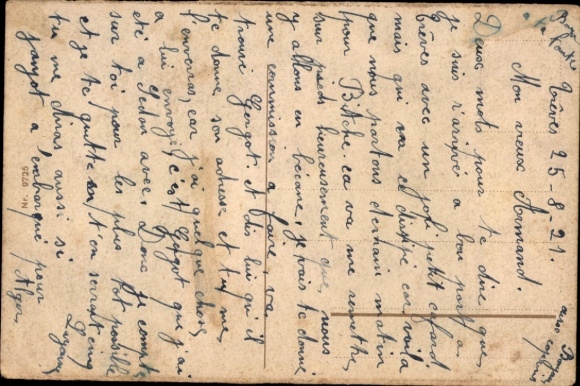 Trèves 25-8-21.
Mon vieux Armand.
Deux mots pour te dire que
je suis r'arrivé a bon port a
trêves avec un joli petit cafard.
mais qui va se dissipé car voila
que nous partons demain matin
pour Bitche. ca va me remettre
sur pieds heureusement que nous
y allons en bécane. je vais te donné
une commission a faire, va
trouvé Gygot et dis lui qu'il
te donne son adresse et tu me
l'enverras, car j'ai quelque chose
a lui envoyé, c'est Gygot que j'ai
été a Sedan avec. Donc je compte
sur toi pour le plus tot possible
et je te quitte en t'en serrant cinq
tu me diras aussi si
gangot a embarqué pour
Alger.
N° 0725